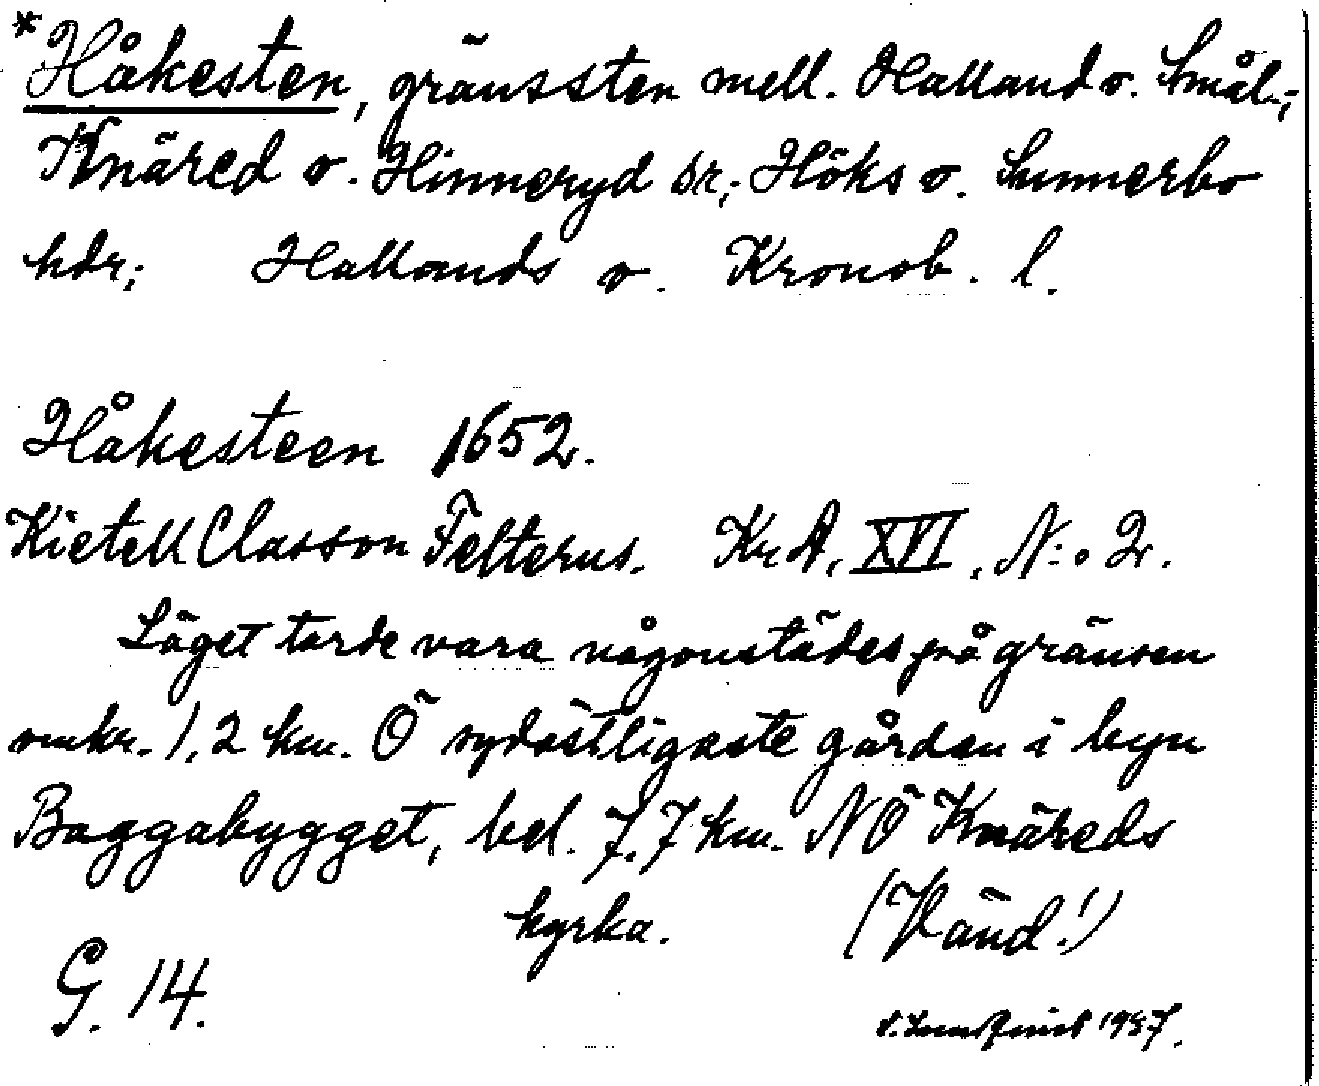 *Håkesten, gränssten mell. Halland o. Smål.;
Knäred o. Hinneryd sr; Höks o. Sunnerbo
hdr; Hallands o. Kronob. l.
Håkesteen 1652.
Kietell Classon Felterus. Kr.A, XVI, N:o 2.
Läget torde vara någonstädes på gränsen
omkr. 1,2 km. Ö sydöstligaste gården i byn
Baggabygget, bel. 7,7 km. NÖ Knäreds
kyrka. (Vänd!)
G. 14.